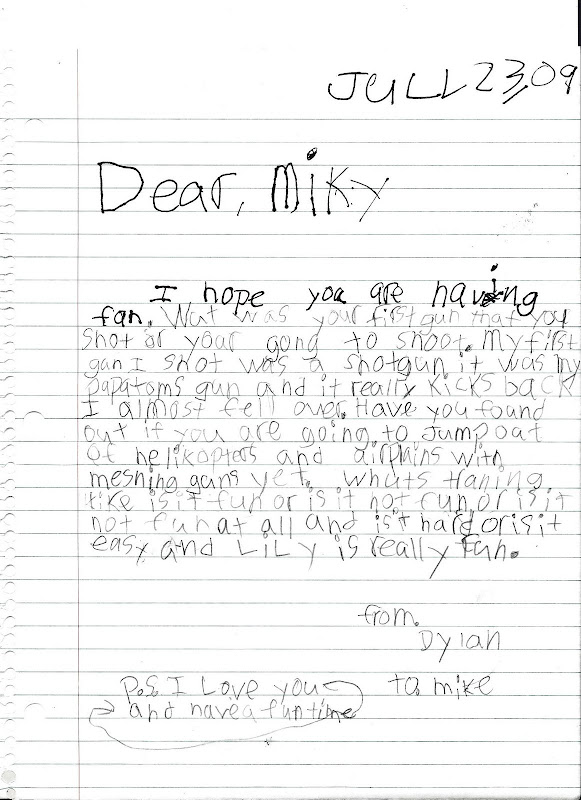 JULL 23,09
Dear, Miky
I hope you are having
fan. Wut was your first gun that you
shot or your gong to shoot. My first
gun I shot was a shotgun it was my
papatoms gun and it really kicks back
I almost fell over. Have you found
out if you are going to Jump out
of helikopters and airplins with
meshing guns yet. whats traning
like is it fun or is it not fun, or is it
not fun at all and is it hard or is it
easy and LiLy is really fun.
from.
Dylan
to mike
p.s. I Love you
and have a fun time